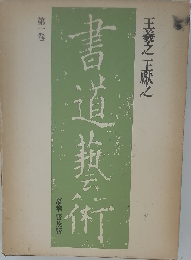 王羲之 王献之
書道藝術
第一巻